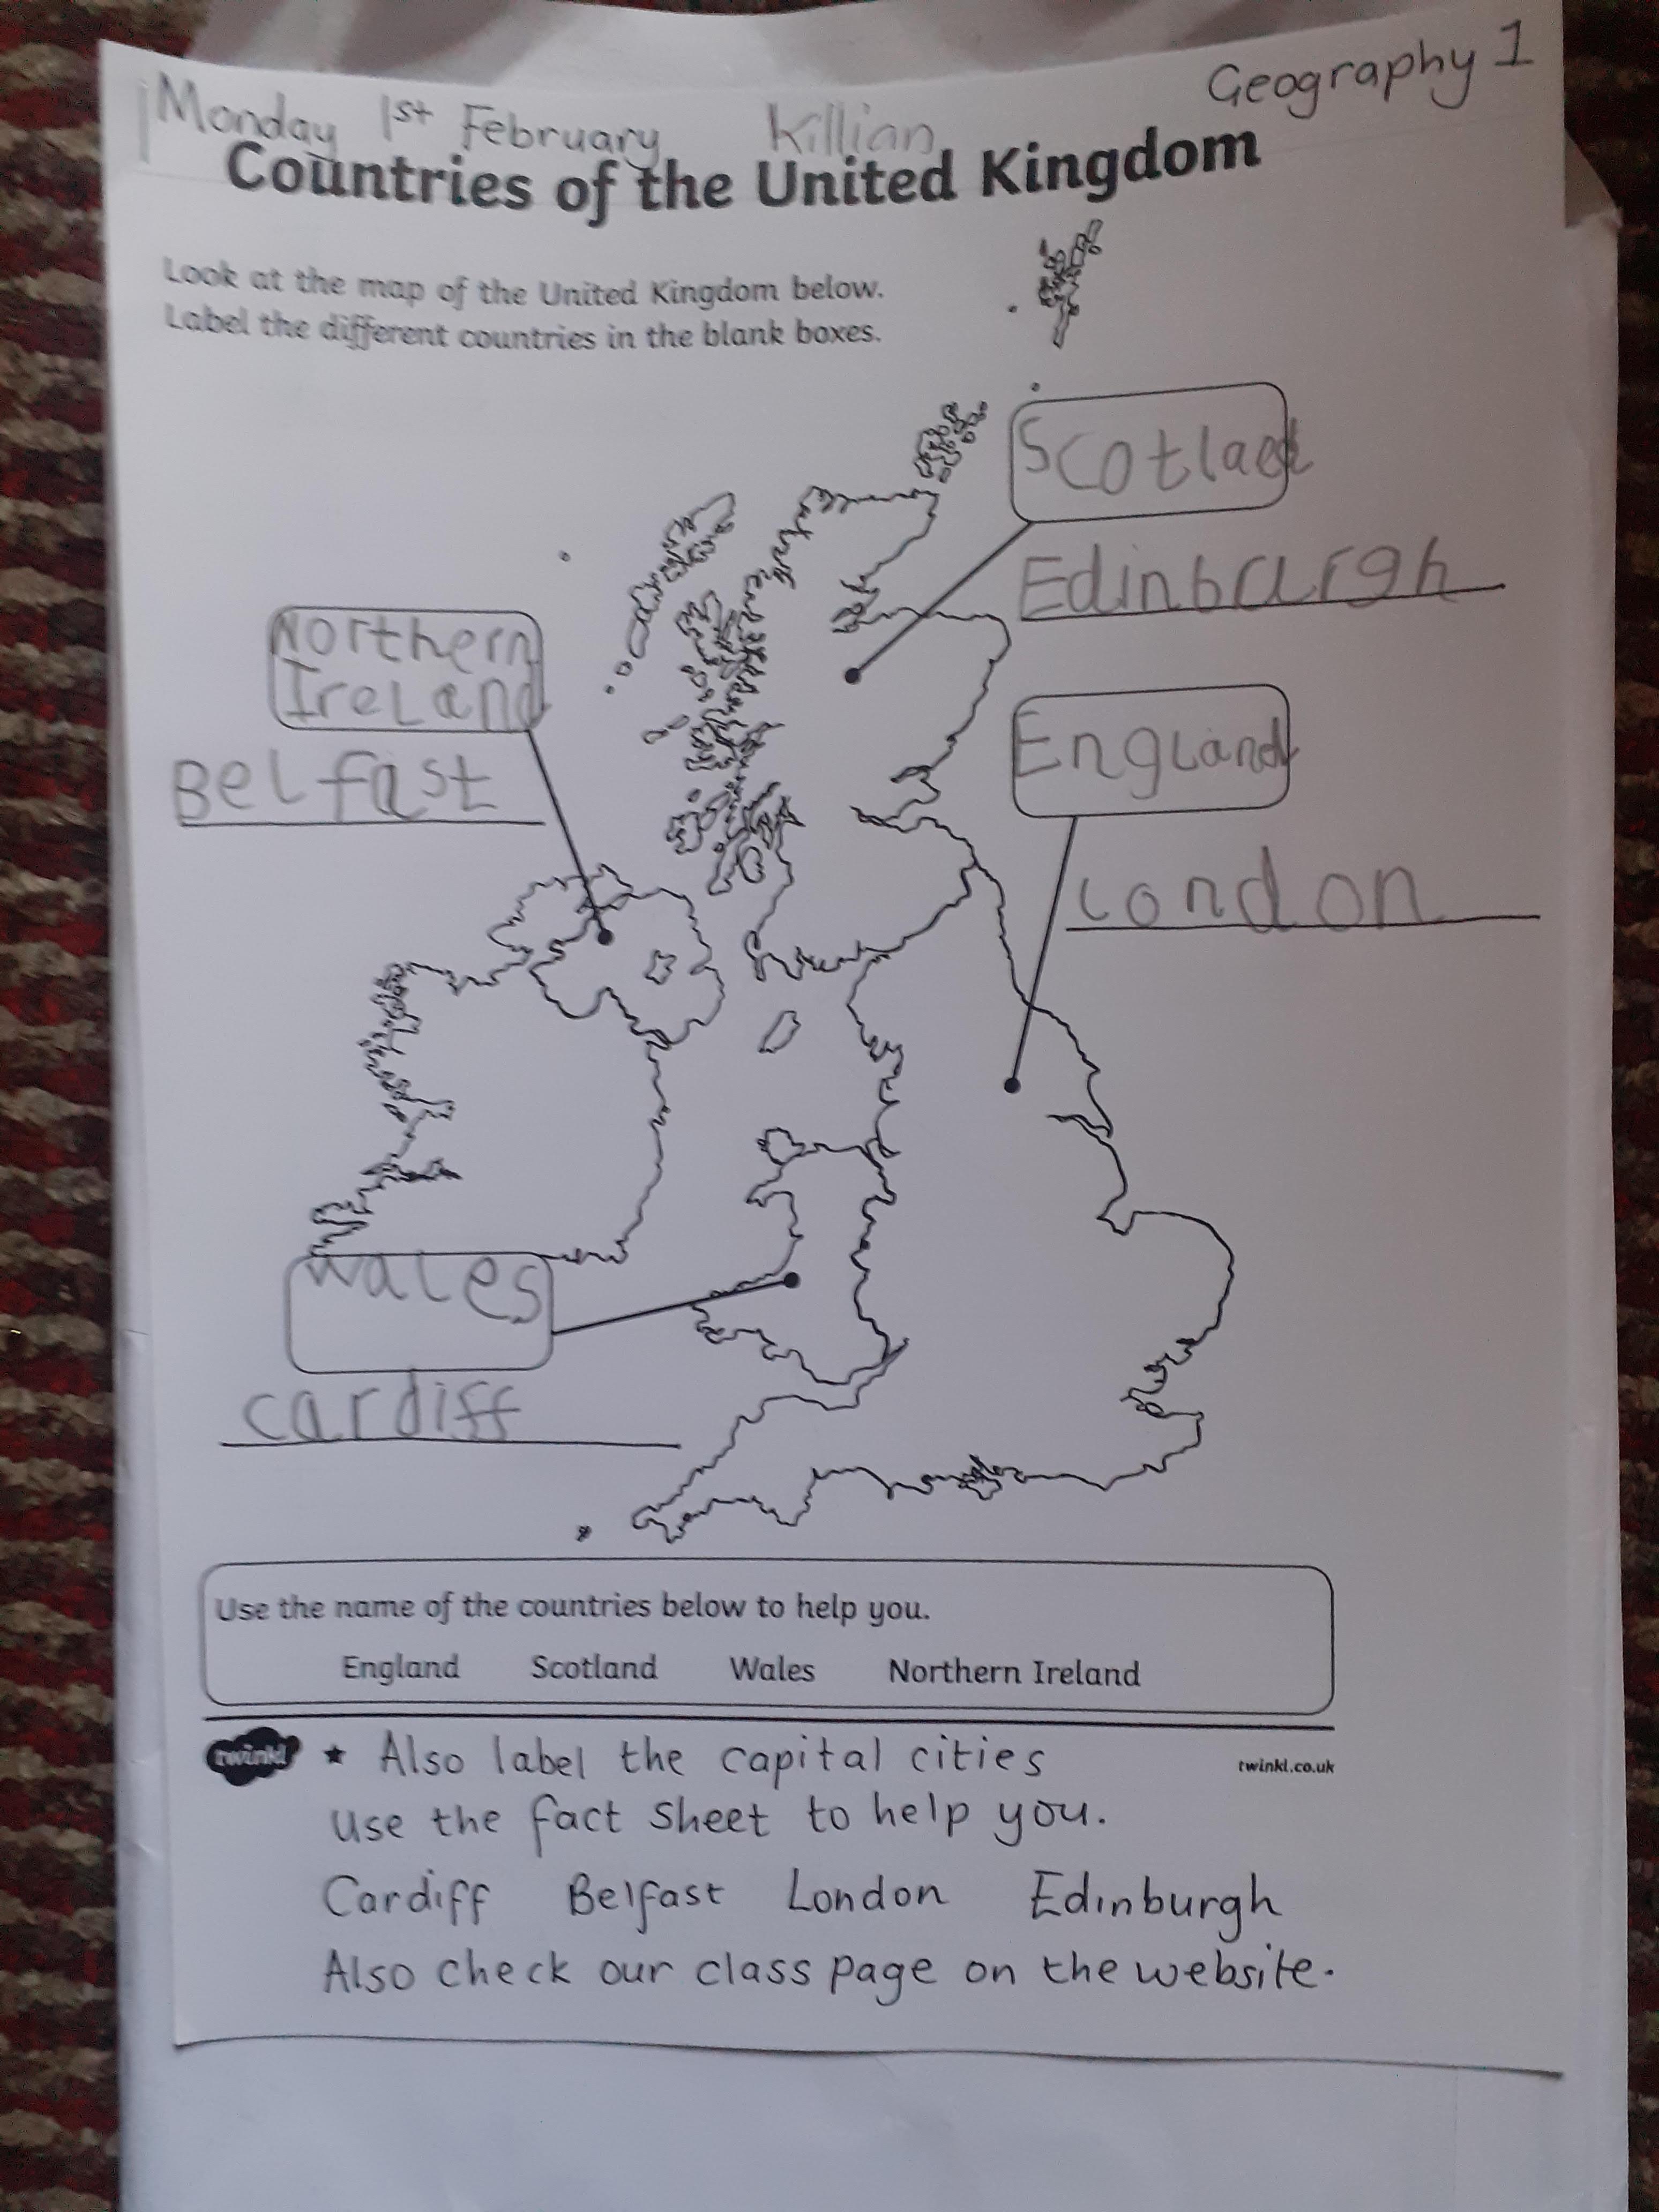 Geography 1
Monday 1st February Killian
Countries of the United Kingdom
Look at the map of the United Kingdom below.
Label the different countries in the blank boxes.
Scotlaed
Edinburgh
Northern
Ireland
Belfast
England
London
wales
cardiff
Use the name of the countries below to help you.
England Scotland Wales Northern Ireland
twinkl
★ Also label the capital cities
twinkl.co.uk
Use the fact sheet to help you.
Cardiff Belfast London Edinburgh
Also check our class page on the website.